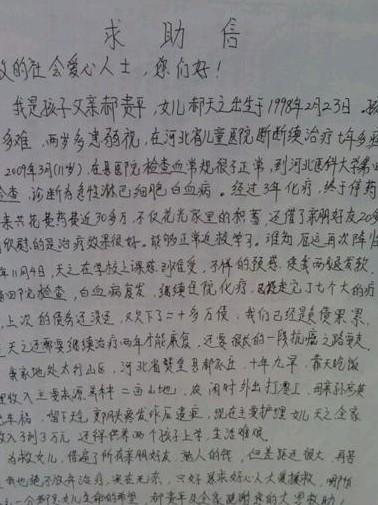 求助信
的社会爱心人士，您们好！
我是孩子父亲郝贵平，女儿郝天之出生于1998年2月23日
多难，两岁多患弱视，在河北省儿童医院断断续续治疗七年多
2009年3月(11岁)，在县医院检查血常规很不正常，到河北医科大学第
诊断为急性淋巴细胞白血病。经过3年化疗，终于停药
来共花费药费近30多万，不仅花光家里的积蓄，还借了亲朋好友20
欣慰的是治疗效果很好。能够正常返校学习。谁知厄运再次降
年11月4日，天之在学校上课感到难受，不祥的预感，使我两腿发软
四院检查，白血病复发，继续住院化疗，已经走完了七个大的疗
上次的债务还没还，又欠下了二十多万债，我们已经是负债累累
天之还需要继续治疗两年才能康复，还要很长的一段抗癌之路要走
我家地处太行山区，河北省赞皇县都 十年九旱，靠天吃饭
收入主要来源是种一亩山地，农闲时外出打零工，母亲
车祸，留下 现在主要护理女儿天之全家
收入3到3万元，还得供养两个孩子上学，生活难维
为救女儿，借遍了所有亲朋好友，熟人的钱，但差距还很大，再苦
也绝不放弃治疗，实在无奈，只好恳求好心人大义援救
女儿生命的希望，郝贵平及全家感谢您的大恩救助！